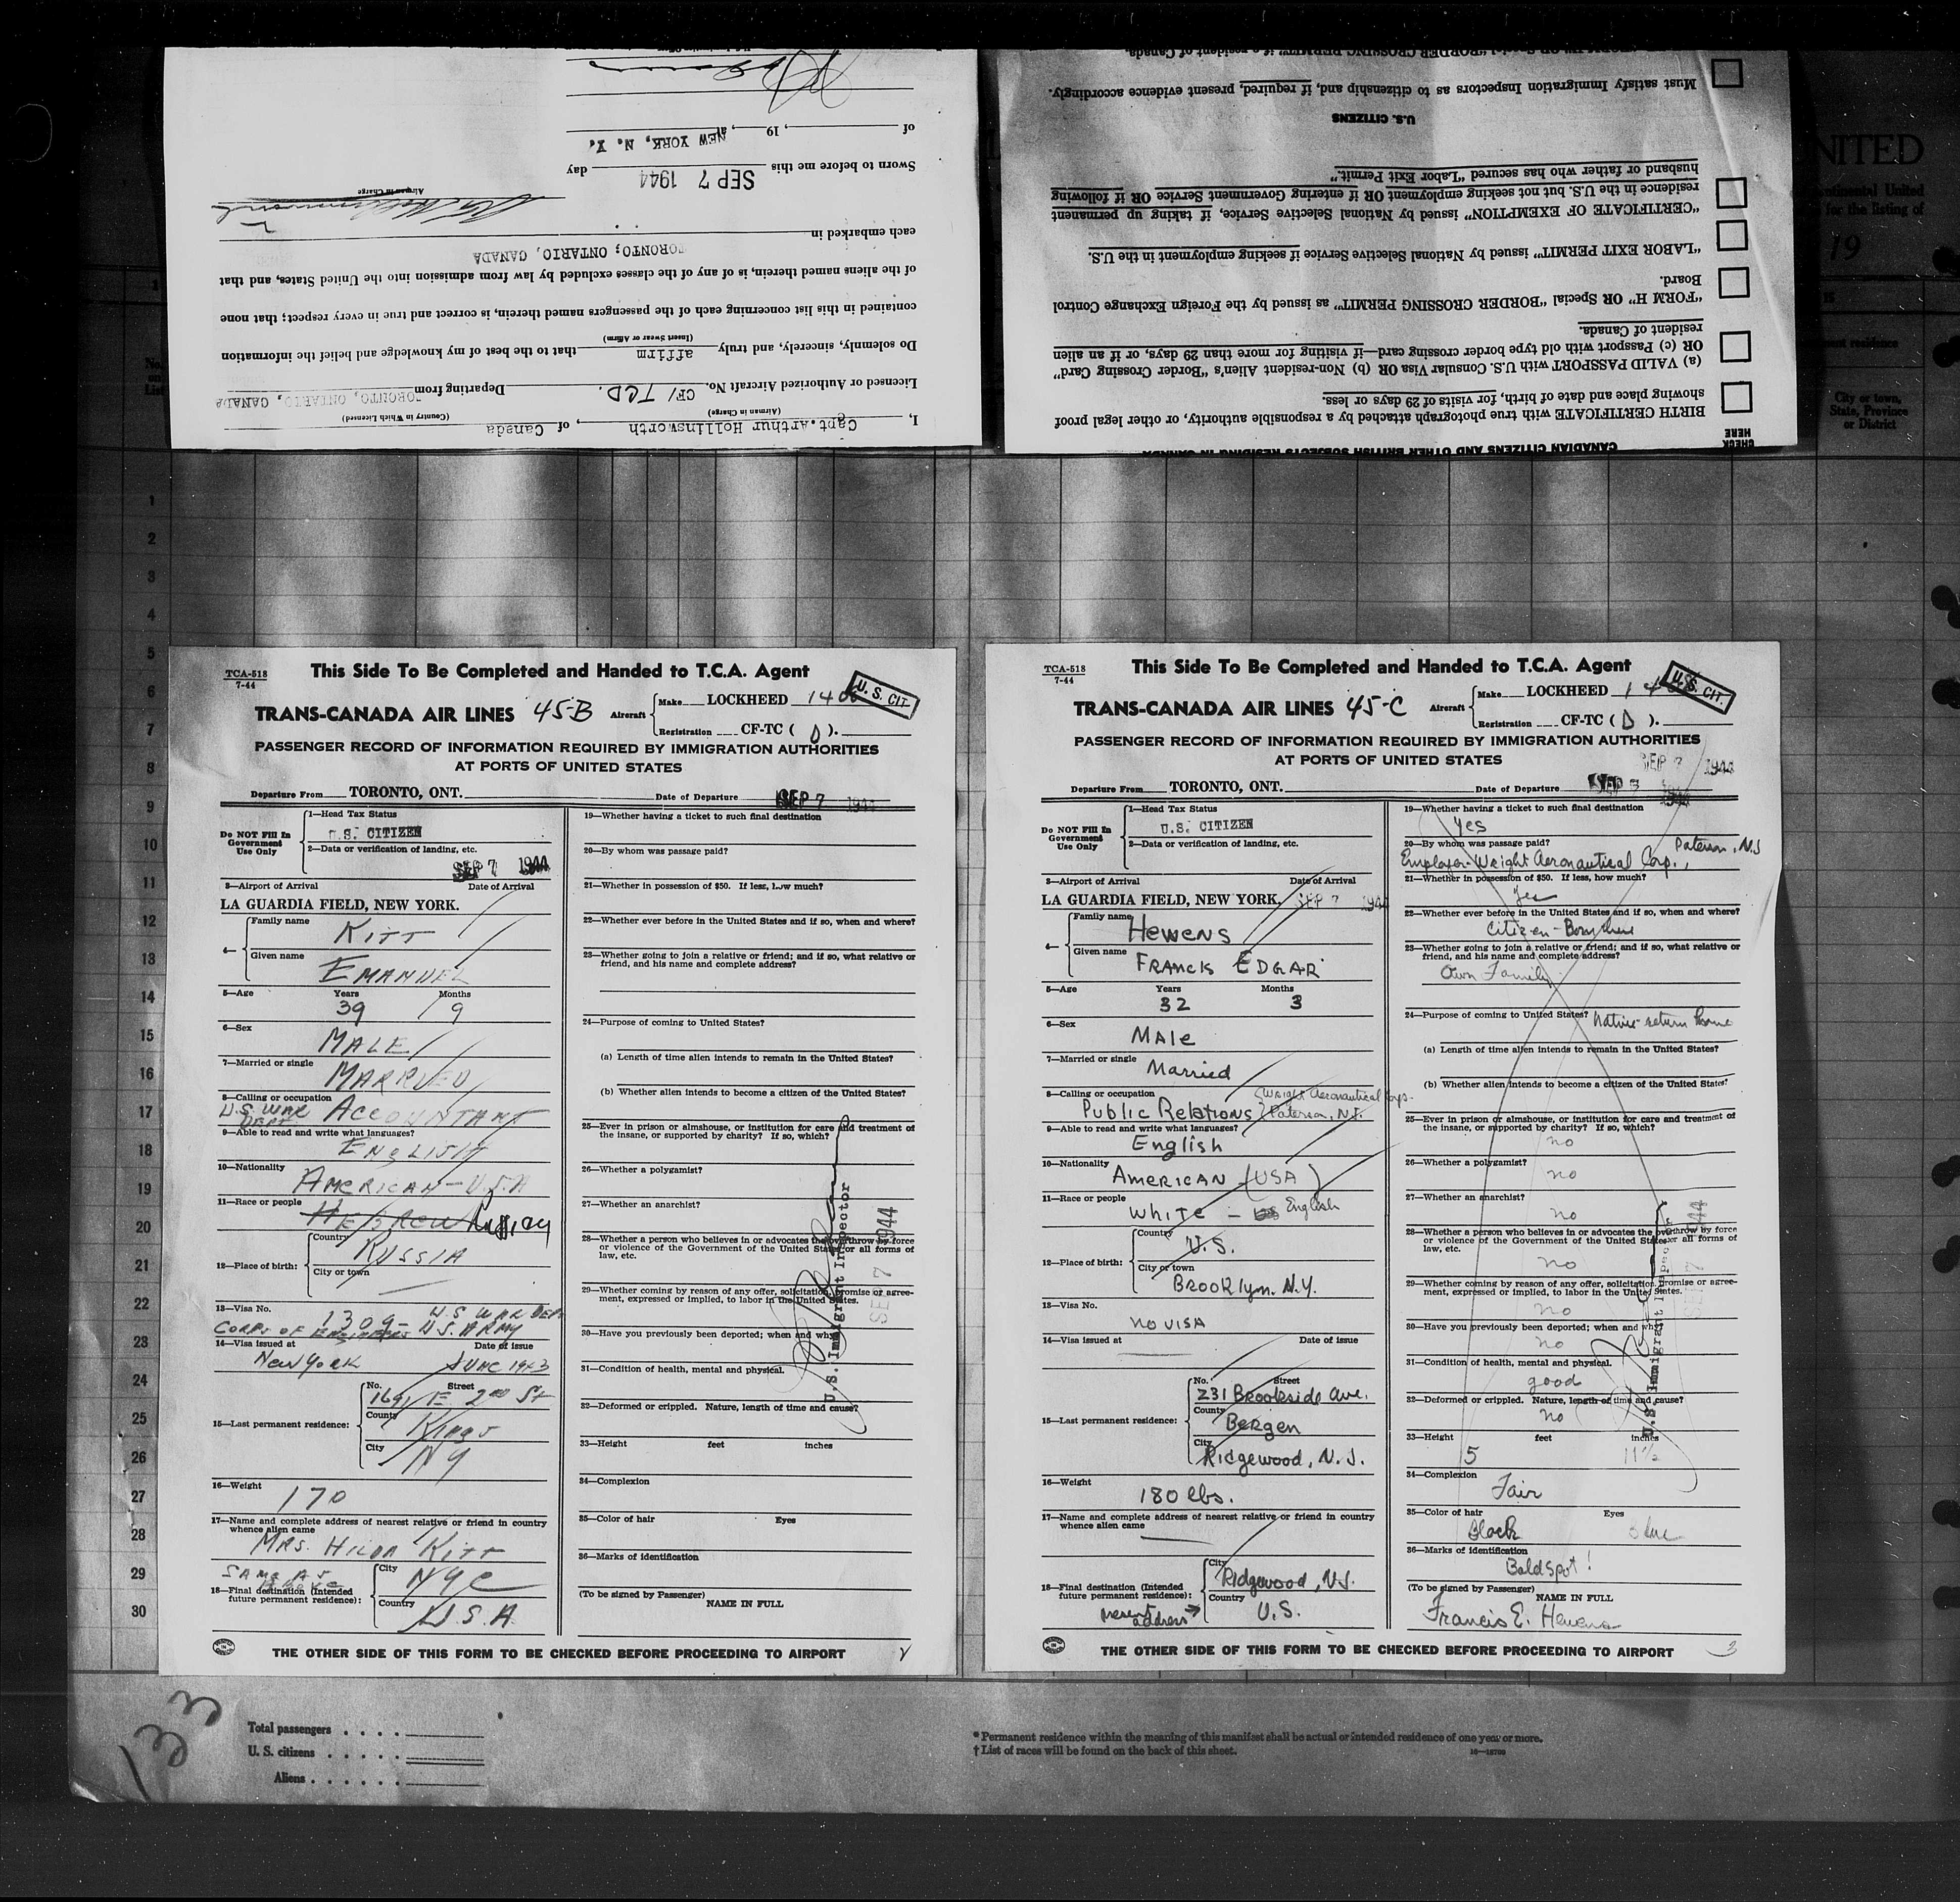 U.S. CITIZENS
Must satisfy Immigration Inspectors as to citizenship and, if required, present evidence accordingly.
I, Capt. Arthur Hollinsworth, of Canada
(Airman in Charge) (Country in Which Licensed)
Licensed or Authorized Aircraft No. CF/ TCD. Departing from TORONTO, ONTARIO, CANADA
Do solemnly, sincerely, and truly affirm that to the best of my knowledge and belief the information
(Insert Swear or Affirm)
contained in this list concerning each of the passengers named therein, is correct and true in every respect; that none
of the aliens named therein, is of any of the classes excluded by law from admission into the United States, and that
TORONTO, ONTARIO, CANADA
each embarked in
Airman in Charge
Sworn to before me this SEP 7 1944 day
of , 19 , at NEW YORK, N. Y.
CANADIAN CITIZENS AND OTHER BRITISH SUBJECTS RESIDING IN CANADA
CHECK HERE
BIRTH CERTIFICATE with true photograph attached by a responsible authority, or other legal proof
showing place and date of birth, for visits of 29 days or less.
(a) VALID PASSPORT with U.S. Consular Visa OR (b) Non-resident Alien's "Border Crossing Card"
OR (c) Passport with old type border crossing card—if visiting for more than 29 days, or if an alien
resident of Canada.
"FORM H" OR Special "BORDER CROSSING PERMIT" as issued by the Foreign Exchange Control
Board.
"LABOR EXIT PERMIT" issued by National Selective Service if seeking employment in the U.S.
"CERTIFICATE OF EXEMPTION" issued by National Selective Service, if taking up permanent
residence in the U.S. but not seeking employment OR if entering Government Service OR if following
husband or father who has secured "Labor Exit Permit."
NITED
ntinental United
for the listing of
19
City or town,
State, Province
or District
1
2
3
4
5
6
7
8
9
10
11
12
13
14
15
16
17
18
19
20
21
22
23
24
25
26
27
28
29
30
TCA-518
7-44
This Side To Be Completed and Handed to T.C.A. Agent
U. S. CIT.
TRANS-CANADA AIR LINES 45-B
Aircraft Make LOCKHEED 1408
Registration CF-TC ( D ).
PASSENGER RECORD OF INFORMATION REQUIRED BY IMMIGRATION AUTHORITIES
AT PORTS OF UNITED STATES
Departure From TORONTO, ONT. Date of Departure SEP 7 1944
Do NOT Fill In
Government
Use Only
1—Head Tax Status
U.S. CITIZEN
2—Data or verification of landing, etc.
SEP 7 1944
3—Airport of Arrival Date of Arrival
LA GUARDIA FIELD, NEW YORK.
4— Family name
KITT
Given name
EMANUEL
5—Age Years Months
39 9
6—Sex
MALE
7—Married or single
MARRIED
8—Calling or occupation
U.S. WAR DEPT. ACCOUNTANT
9—Able to read and write what languages?
ENGLISH
10—Nationality
AMERICAN - U.S.A
11—Race or people
HEBREW Russian
12—Place of birth: Country
RUSSIA
City or town
13—Visa No. 1309 - U.S WAR DEP.
CORPS OF ENGINEERS U.S. ARMY
14—Visa issued at Date of issue
New York JUNE 1943
15—Last permanent residence: No. Street
1691 E 2ND St
County
Kings
City
NY
16—Weight
170
17—Name and complete address of nearest relative or friend in country
whence alien came
MRS. HILDA KITT
SAME AS ABOVE
18—Final destination (Intended
future permanent residence):
City
NYC
Country
U.S.A
19—Whether having a ticket to such final destination
20—By whom was passage paid?
21—Whether in possession of $50. If less, how much?
22—Whether ever before in the United States and if so, when and where?
23—Whether going to join a relative or friend; and if so, what relative or
friend, and his name and complete address?
24—Purpose of coming to United States?
(a) Length of time alien intends to remain in the United States?
(b) Whether alien intends to become a citizen of the United States?
25—Ever in prison or almshouse, or institution for care and treatment of
the insane, or supported by charity? If so, which?
26—Whether a polygamist?
27—Whether an anarchist?
28—Whether a person who believes in or advocates the overthrow by force
or violence of the Government of the United States or all forms of
law, etc.
29—Whether coming by reason of any offer, solicitation, promise or agree-
ment, expressed or implied, to labor in the United States.
30—Have you previously been deported; when and why?
31—Condition of health, mental and physical.
32—Deformed or crippled. Nature, length of time and cause?
33—Height feet inches
34—Complexion
35—Color of hair Eyes
36—Marks of identification
(To be signed by Passenger)
NAME IN FULL
U.S. Immigrant Inspector
SEP 7 1944
THE OTHER SIDE OF THIS FORM TO BE CHECKED BEFORE PROCEEDING TO AIRPORT
TCA-518
7-44
This Side To Be Completed and Handed to T.C.A. Agent
U.S. CIT.
TRANS-CANADA AIR LINES 45-C
Aircraft Make LOCKHEED
Registration CF-TC ( D ).
PASSENGER RECORD OF INFORMATION REQUIRED BY IMMIGRATION AUTHORITIES
AT PORTS OF UNITED STATES
SEP 7 1944
Departure From TORONTO, ONT. Date of Departure SEP 7 1944
Do NOT Fill In
Government
Use Only
1—Head Tax Status
U.S. CITIZEN
2—Data or verification of landing, etc.
3—Airport of Arrival Date of Arrival
LA GUARDIA FIELD, NEW YORK. SEP 7 1944
4— Family name
Hewens
Given name
FRANCIS EDGAR
5—Age Years Months
32 3
6—Sex
Male
7—Married or single
Married
8—Calling or occupation
Public Relations (Wright Aeronautical Corp. Paterson, N.J.
9—Able to read and write what languages?
English
10—Nationality
American (USA)
11—Race or people
White - English
12—Place of birth: Country
U.S.
City or town
Brooklyn. N.Y.
13—Visa No.
no visa
14—Visa issued at Date of issue
15—Last permanent residence: No. Street
231 Brookside Ave.
County
Bergen
City
Ridgewood, N.J.
16—Weight
180 lbs.
17—Name and complete address of nearest relative or friend in country
whence alien came
18—Final destination (Intended
future permanent residence):
present address
City
Ridgewood, N.J.
Country
U.S.
19—Whether having a ticket to such final destination
yes
20—By whom was passage paid? Paterson, N.J
Employer-Wright Aeronautical Corp.,
21—Whether in possession of $50. If less, how much?
Yes
22—Whether ever before in the United States and if so, when and where?
Citizen - Born here
23—Whether going to join a relative or friend; and if so, what relative or
friend, and his name and complete address?
Own Family
24—Purpose of coming to United States? Native return home
(a) Length of time alien intends to remain in the United States?
(b) Whether alien intends to become a citizen of the United States?
25—Ever in prison or almshouse, or institution for care and treatment of
the insane, or supported by charity? If so, which?
no
26—Whether a polygamist?
no
27—Whether an anarchist?
no
28—Whether a person who believes in or advocates the overthrow by force
or violence of the Government of the United States or all forms of
law, etc.
no
29—Whether coming by reason of any offer, solicitation, promise or agree-
ment, expressed or implied, to labor in the United States.
no
30—Have you previously been deported; when and why?
no
31—Condition of health, mental and physical.
good
32—Deformed or crippled. Nature, length of time and cause?
no
33—Height feet inches
5 11½
34—Complexion
Fair
35—Color of hair Eyes
Black blue
36—Marks of identification
Bald spot!
(To be signed by Passenger)
NAME IN FULL
Francis E. Hewens
U.S. Immigrant Inspector
SEP 7 1944
THE OTHER SIDE OF THIS FORM TO BE CHECKED BEFORE PROCEEDING TO AIRPORT
3
133
Total passengers . . . .
U. S. citizens . . . . .
Aliens . . . . . .
* Permanent residence within the meaning of this manifest shall be actual or intended residence of one year or more.
† List of races will be found on the back of this sheet.